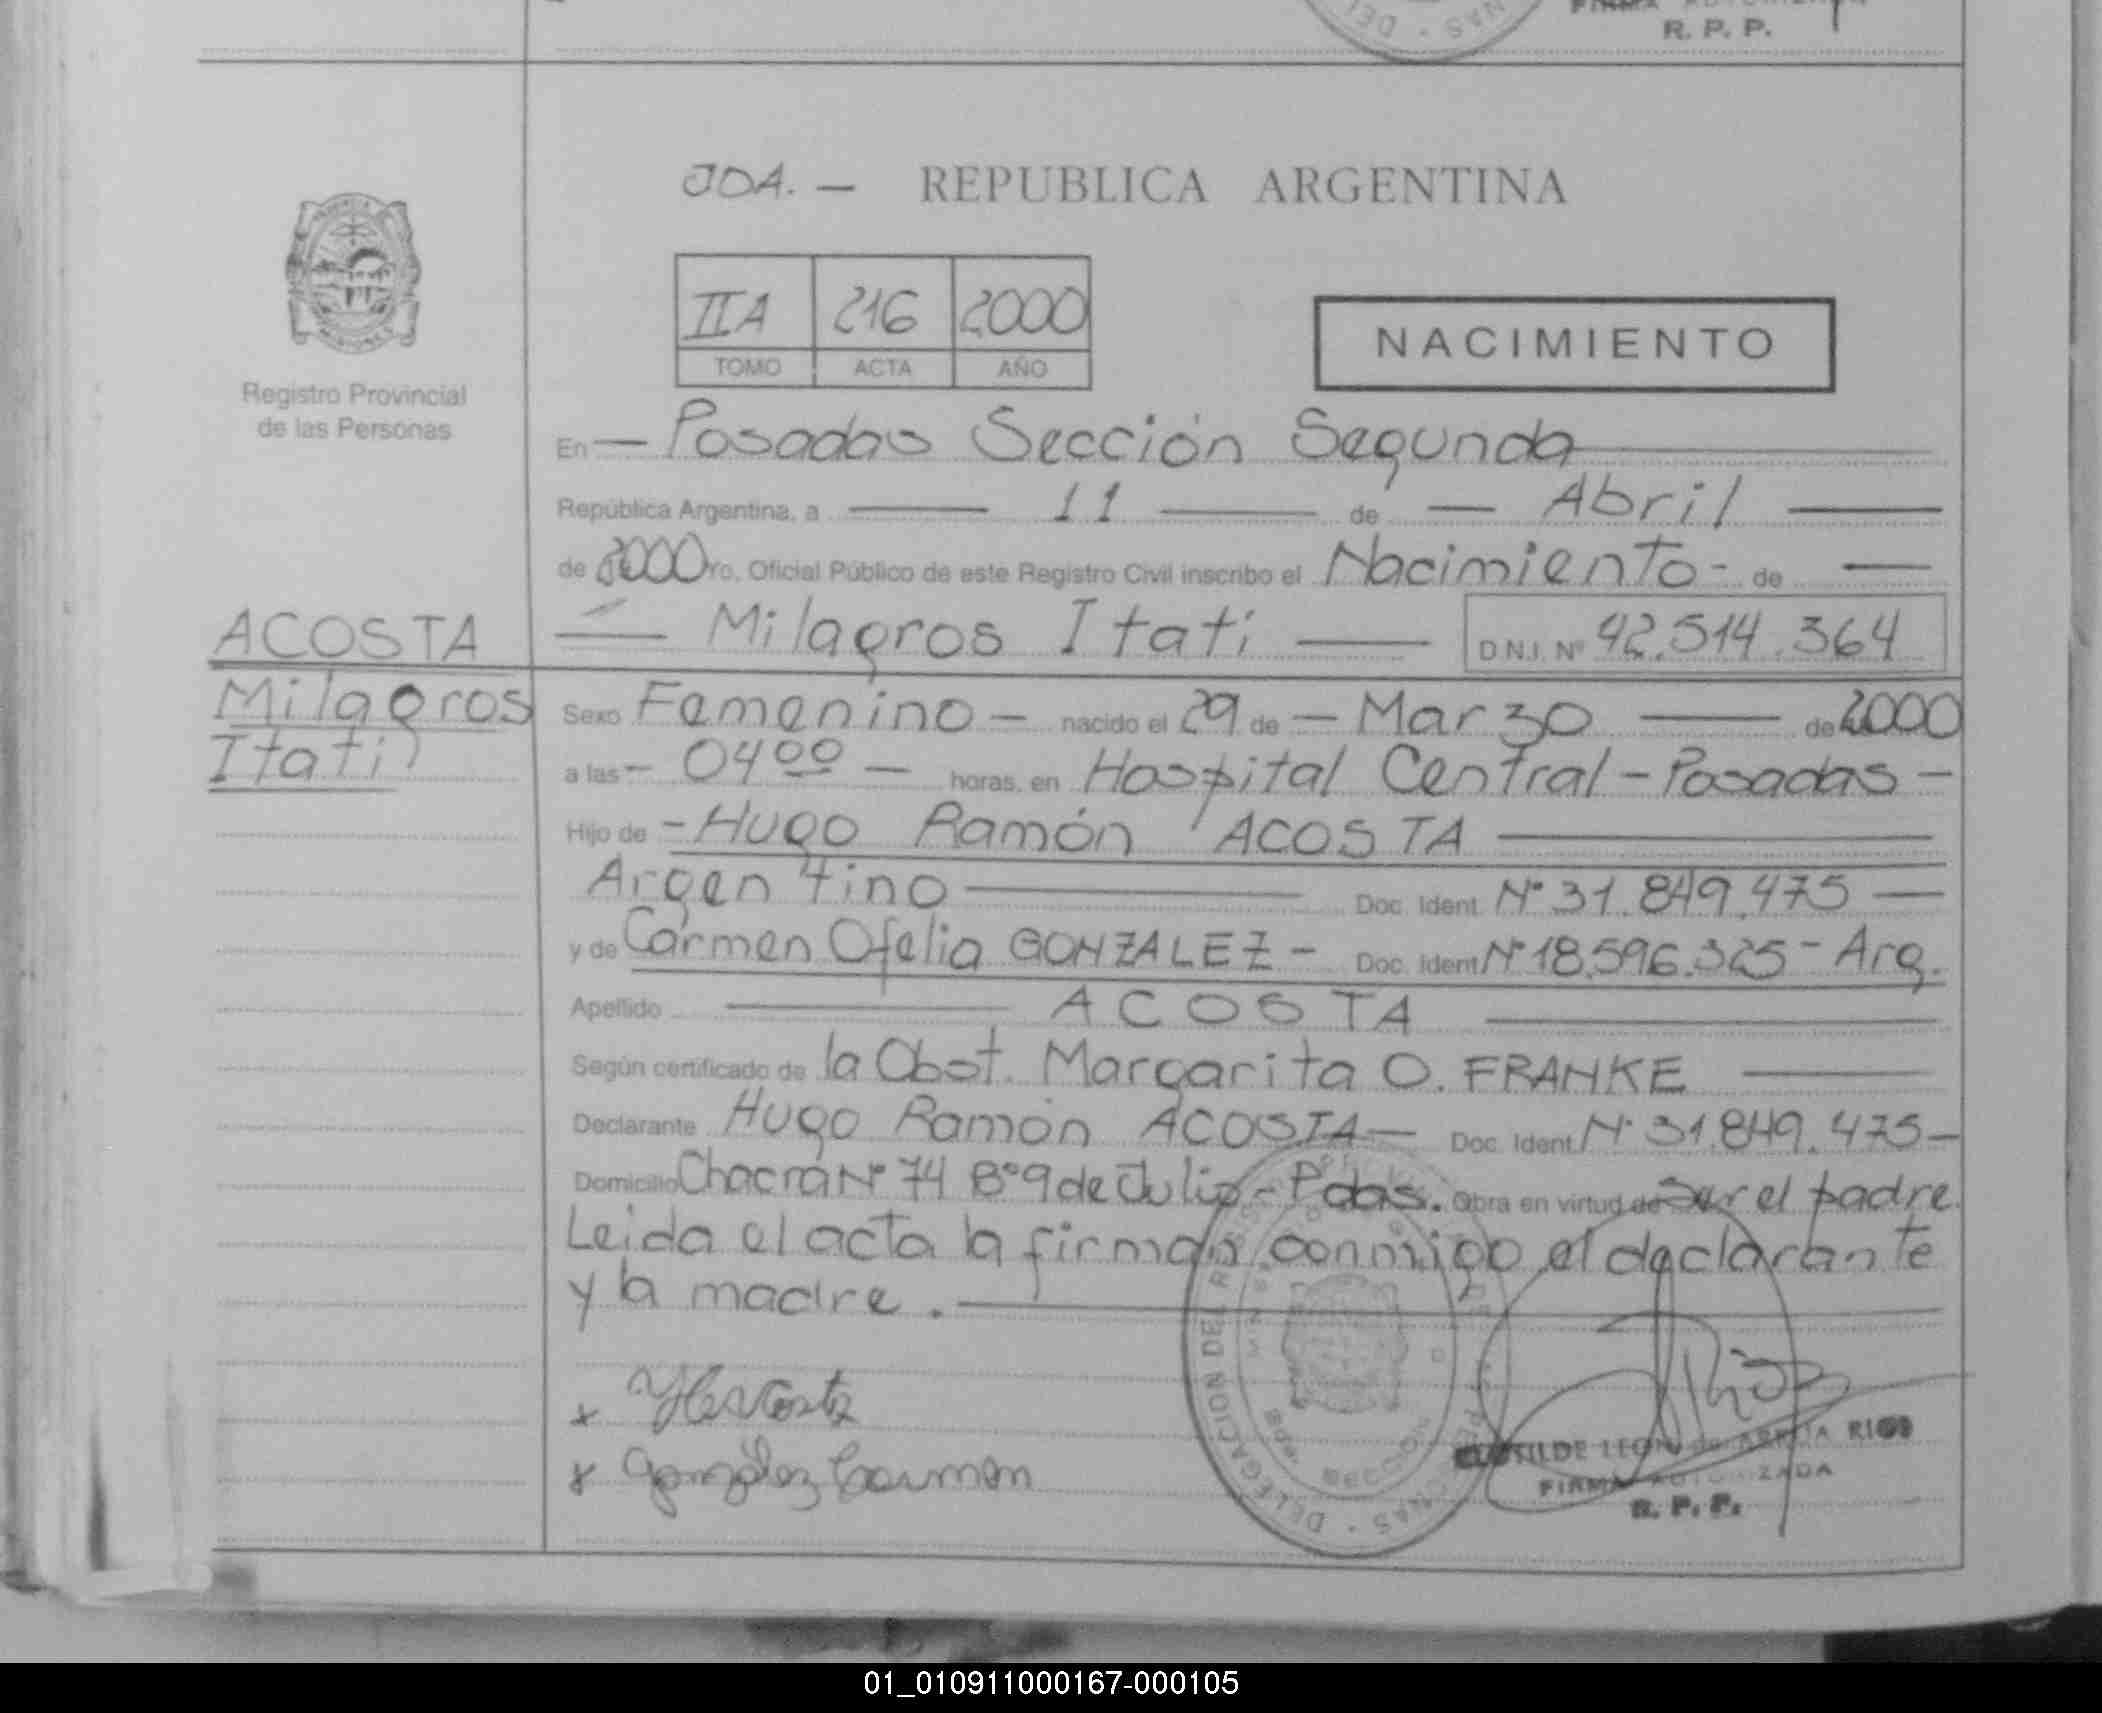 R. P. P.
JOA. — REPUBLICA ARGENTINA
IIA 216 2000
TOMO ACTA AÑO
NACIMIENTO
Registro Provincial
de las Personas
En — Posadas Sección Segunda
República Argentina, a — 11 — de — Abril —
de 2000 Yo, Oficial Público de este Registro Civil inscribo el Nacimiento - de —
ACOSTA
Milagros
Itati
— Milagros Itati — D.N.I. Nº 42.514.364
Sexo Femenino — nacido el 29 de — Marzo — de 2000
a las — 04 00 — horas, en Hospital Central - Posadas -
Hijo de - Hugo Ramón ACOSTA
Argentino — Doc. Ident. Nº 31.849.475 —
y de Carmen Ofelia GONZALEZ - Doc. Ident. Nº 18.596.325 - Arg.
Apellido — ACOSTA —
Según certificado de la Obst. Margarita O. FRANKE —
Declarante Hugo Ramón ACOSTA — Doc. Ident. Nº 31.849.475 —
Domicilio Chacra Nº 74 Bº 9 de Julio - Pdas. Obra en virtud de Ser el padre.
Leida el acta la firman conmigo el declarante
y la madre.
x
x González Carmen
DELEGACION DEL
CLOTILDE LEON de RIOS
FIRMA AUTORIZADA
R. P. P.
01_010911000167-000105